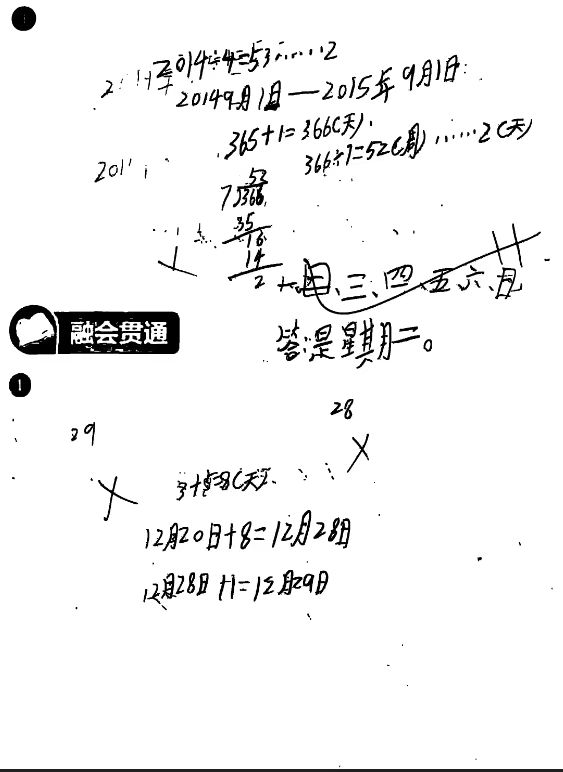 1
2014÷4=53……2
20149月1日—2015年9月1日
365+1=366(天).
366÷7=52(周)……2(天)
201
53
7 366
35
16
14
2
一、二、三、四、五、六、日
答:是星期二。
融会贯通
1
28
29
3+5=8(天)
12月20日+8=12月28日
12月28日+1=12月29日